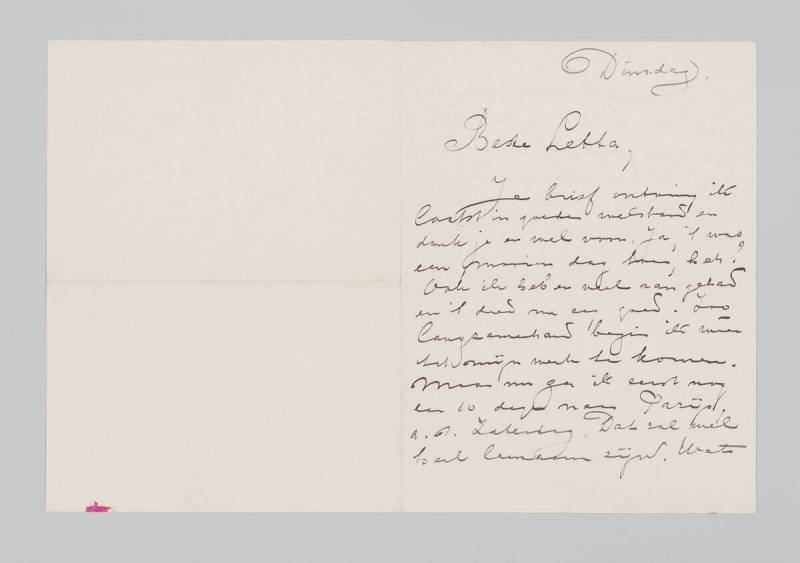 Dinsdag.
Beste Letta,
Je brief ontving ik
laatst in goeden welstand en
dank je er wel voor. Ja, 't was
een mooien dag toen, hè?
Ook ik heb er veel aan gehad
en 't deed me erg goed. Zoo
langzamerhand begin ik weer
tot mijn werk te komen.
Maar nu ga ik eerst nog
een 10 dagen naar Parijs,
a.s. Zaterdag. Dat zal wel
heel leerzaam zijn. Wat